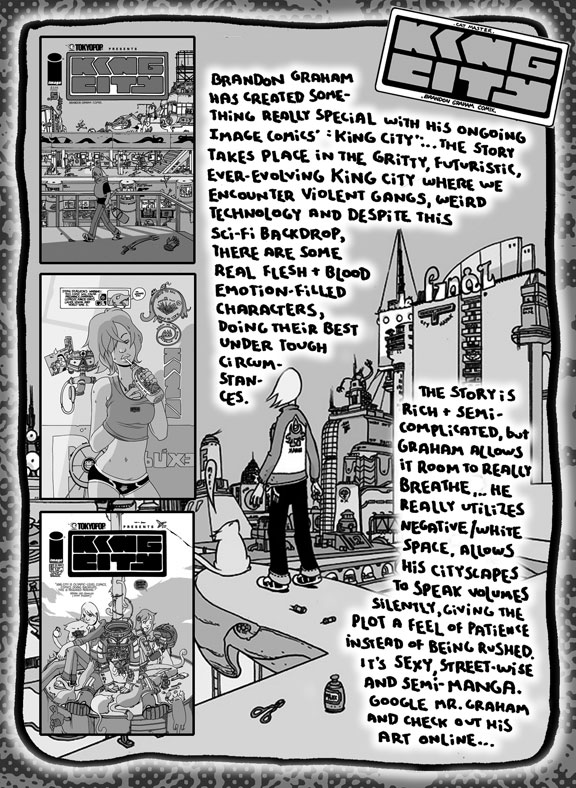 CAT MASTER
KING
CITY
BRANDON GRAHAM COMIX.
TOKYOPOP PRESENTS
image
KING
CITY
BRANDON GRAHAM
HAS CREATED SOME-
THING REALLY SPECIAL WITH HIS ONGOING
IMAGE COMICS' : "KING CITY"... THE STORY
TAKES PLACE IN THE GRITTY, FUTURISTIC,
EVER-EVOLVING KING CITY WHERE WE
ENCOUNTER VIOLENT GANGS, WEIRD
TECHNOLOGY AND DESPITE THIS
SCI-FI BACKDROP,
THERE ARE SOME
REAL FLESH + BLOOD
EMOTION-FILLED
CHARACTERS,
DOING THEIR BEST
UNDER TOUGH
CIRCUM-
STAN-
CES.
KING
TOKYOPOP PRESENTS
image
KING
CITY
THE STORY IS
RICH + SEMI-
COMPLICATED, but
GRAHAM ALLOWS
IT ROOM TO REALLY
BREATHE,... HE
REALLY UTILIZES
NEGATIVE/WHITE
SPACE, ALLOWS
HIS CITYSCAPES
TO SPEAK VOLUMES
SILENTLY, GIVING THE
PLOT A FEEL OF PATIENCE
INSTEAD OF BEING RUSHED.
IT'S SEXY, STREET-WISE
AND SEMI-MANGA.
GOOGLE MR. GRAHAM
AND CHECK OUT HIS
ART ONLINE...